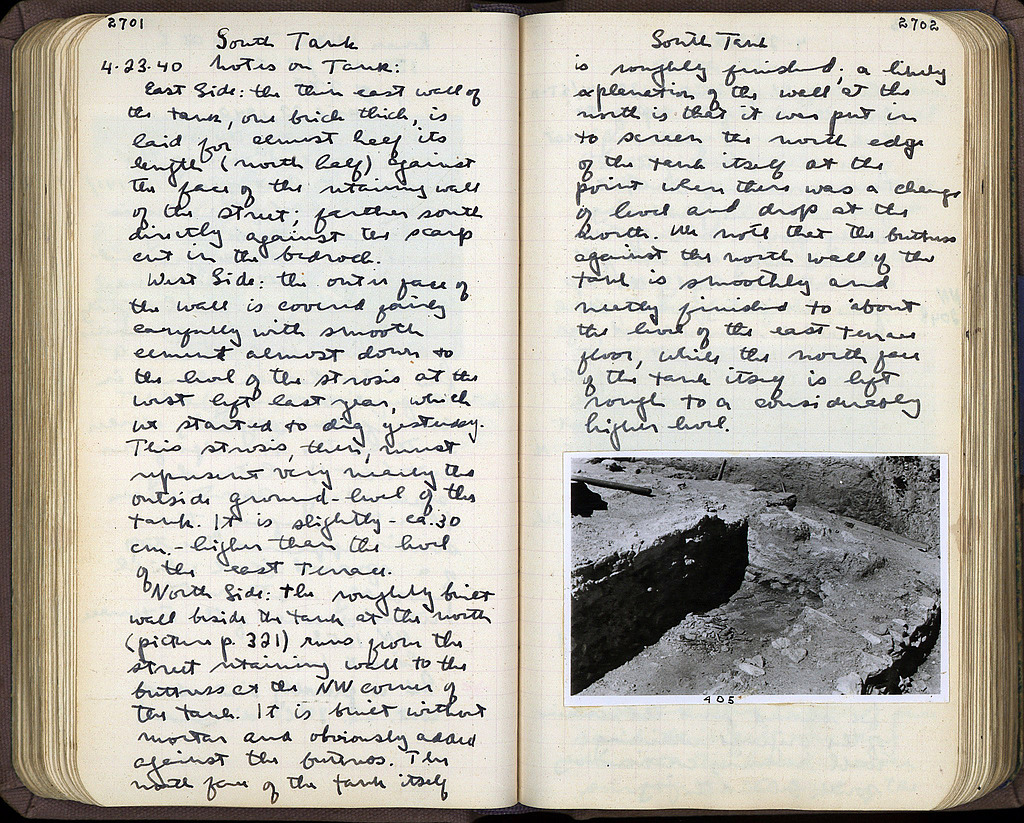 2701
South Tank
4.23.40 Notes on Tank:
East Side: the thin east wall of
the tank, one brick thick, is
laid for almost half its
length (north half) against
the face of the retaining wall
of the street; farther south
directly against the scarp
cut in the bedrock.
West Side: the outer face of
the wall is covered fairly
carefully with smooth
cement almost down to
the level of the strosis at the
west left last year, which
we started to dig yesterday.
This strosis, then, must
represent very nearly the
outside ground-level of the
tank. It is slightly - ca. 30
cm. - higher than the level
of the east Terrace.
North Side: the roughly built
wall beside the tank at the north
(picture p. 321) runs from the
street retaining wall to the
buttress at the NW corner of
the tank. It is built without
mortar and obviously added
against the buttress. The
north face of the tank itself
2702
South Tank
is roughly finished; a likely
explanation of the wall at the
north is that it was put in
to screen the north edge
of the tank itself at the
point where there was a change
of level and drop at the
north. We note that the buttress
against the north wall of the
tank is smoothly and
neatly finished to about
the level of the east Terrace
floor, while the north face
of the tank itself is left
rough to a considerably
higher level.
405